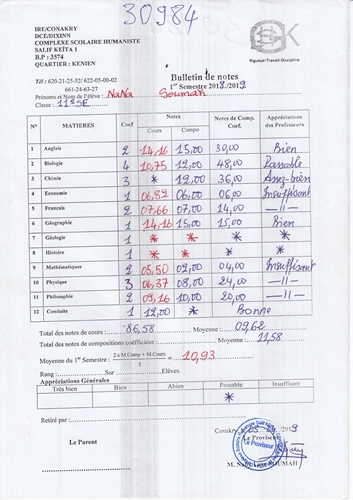 30984
IRE/CONAKRY
DCE/DIXINN
COMPLEXE SCOLAIRE HUMANISTE
SALIF KEÏTA 1
B.P : 3574
QUARTIER : KENIEN
Rigueur-Travail-Discipline
Tél : 620-21-25-52/ 622-05-00-02
661-24-63-27
Bulletin de notes
1er Semestre 2018/2019
Prénoms et Nom de l'élève : NANA Soumah
Classe : 11è SE
N° MATIERES Coef Notes de Notes de Comp. Coef. Appréciations des Professeurs
Cours Compo
1 Anglais 2 14,16 15,00 30,00 Bien
2 Biologie 4 10,75 12,00 48,00 Passable
3 Chimie 3 * 12,00 36,00 Assez-bien
4 Economie 1 06,82 06,00 06,00 Insuffisant
5 Français 2 07,66 07,00 14,00 —//—
6 Géographie 1 14,16 15,00 15,00 Bien
7 Géologie 1 * * * *
8 Histoire 1 * * * *
9 Mathématiques 2 05,50 02,00 04,00 Insuffisant
10 Physique 3 06,37 08,00 24,00 —//—
11 Philosophie 2 09,16 10,00 20,00 —//—
12 Conduite 1 12,00 * Bonne
Total des notes de cours : 86,58 Moyenne : 09,62
Total des notes de compositions coefficiées : Moyenne : 11,58
Moyenne du 1er Semestre : 2 x M.Comp + M.Cours / 3 = 10,93
Rang : Sur Elèves.
Appréciations Générales
Très bien Bien Abien Passable Insuffisant
*
Retiré par :
Conakry 2019
Le Parent
Le Proviseur
Le Proviseur